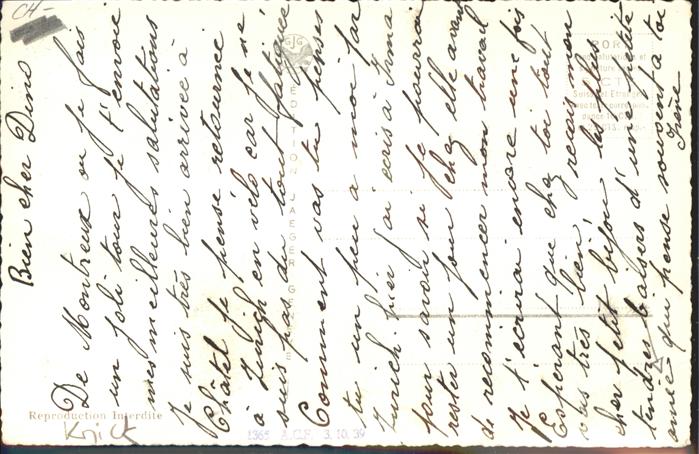 Bien cher Dino
De Montreux où je fais
un joli tour je t'envoie
mes meilleures salutations
Je suis très bien arrivée à
Châtel je pense retournée
à Zurich en vélo car je ne
suis pas du tout fatiguée
Comment vas tu penses
tu un peu à moi par
Zurich. hier j'ai écris à Irma
pour savoir si je pourrai
rester un jour chez elle avant
de recommencer mon travail
Je t'écrirai encore une fois
Espérant que chez toi tout
vas très bien, reçois mon
cher petit bijou les plus
tendres baisers d'une petite
amie qui pense souvent à toi
Irène
CH-
EDITION JAEGER GE
Reproduction Interdite
1365 A.C.F. 3.10.39